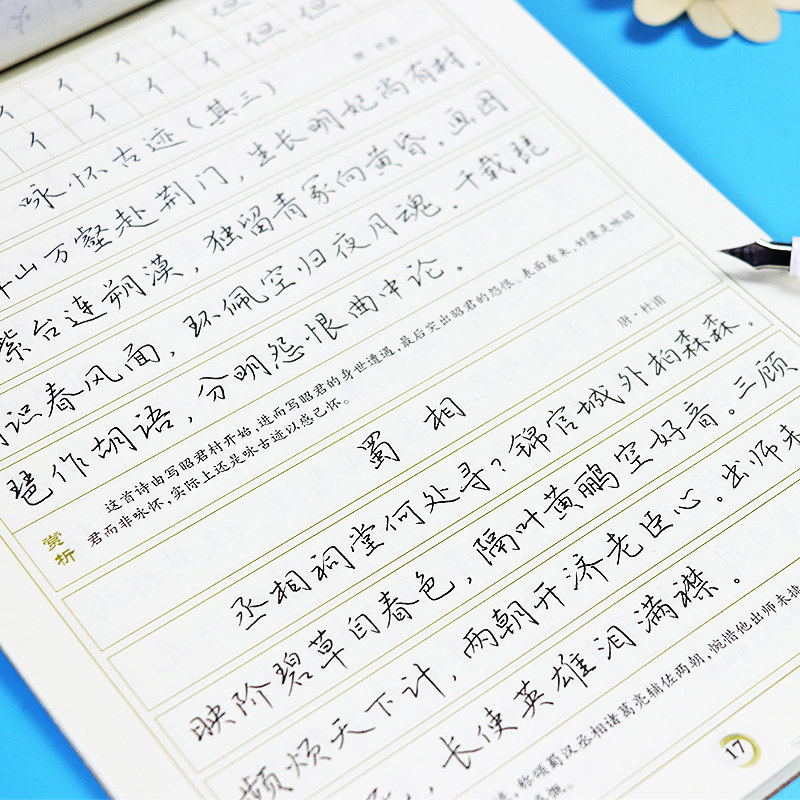 亻 亻 亻 亻 但 但
亻 亻 亻 亻 但 但
咏怀古迹（其三）
唐·杜甫
山万壑赴荆门，生长明妃尚有村。
紫台连朔漠，独留青冢向黄昏。画图
识春风面，环佩空归夜月魂。千载琵
琶作胡语，分明怨恨曲中论。
赏析
这首诗由写昭君村开始，进而写昭君的身世遭遇，最后突出昭君的怨恨。表面看来，好像是咏昭
君而非咏怀，实际上还是咏古迹以感己怀。
蜀相
唐·杜甫
丞相祠堂何处寻？锦官城外柏森森。
映阶碧草自春色，隔叶黄鹏空好音。三顾
频烦天下计，两朝开济老臣心。出师未
，长使英雄泪满襟。
称颂蜀汉丞相诸葛亮辅佐两朝，惋惜他出师未捷
17